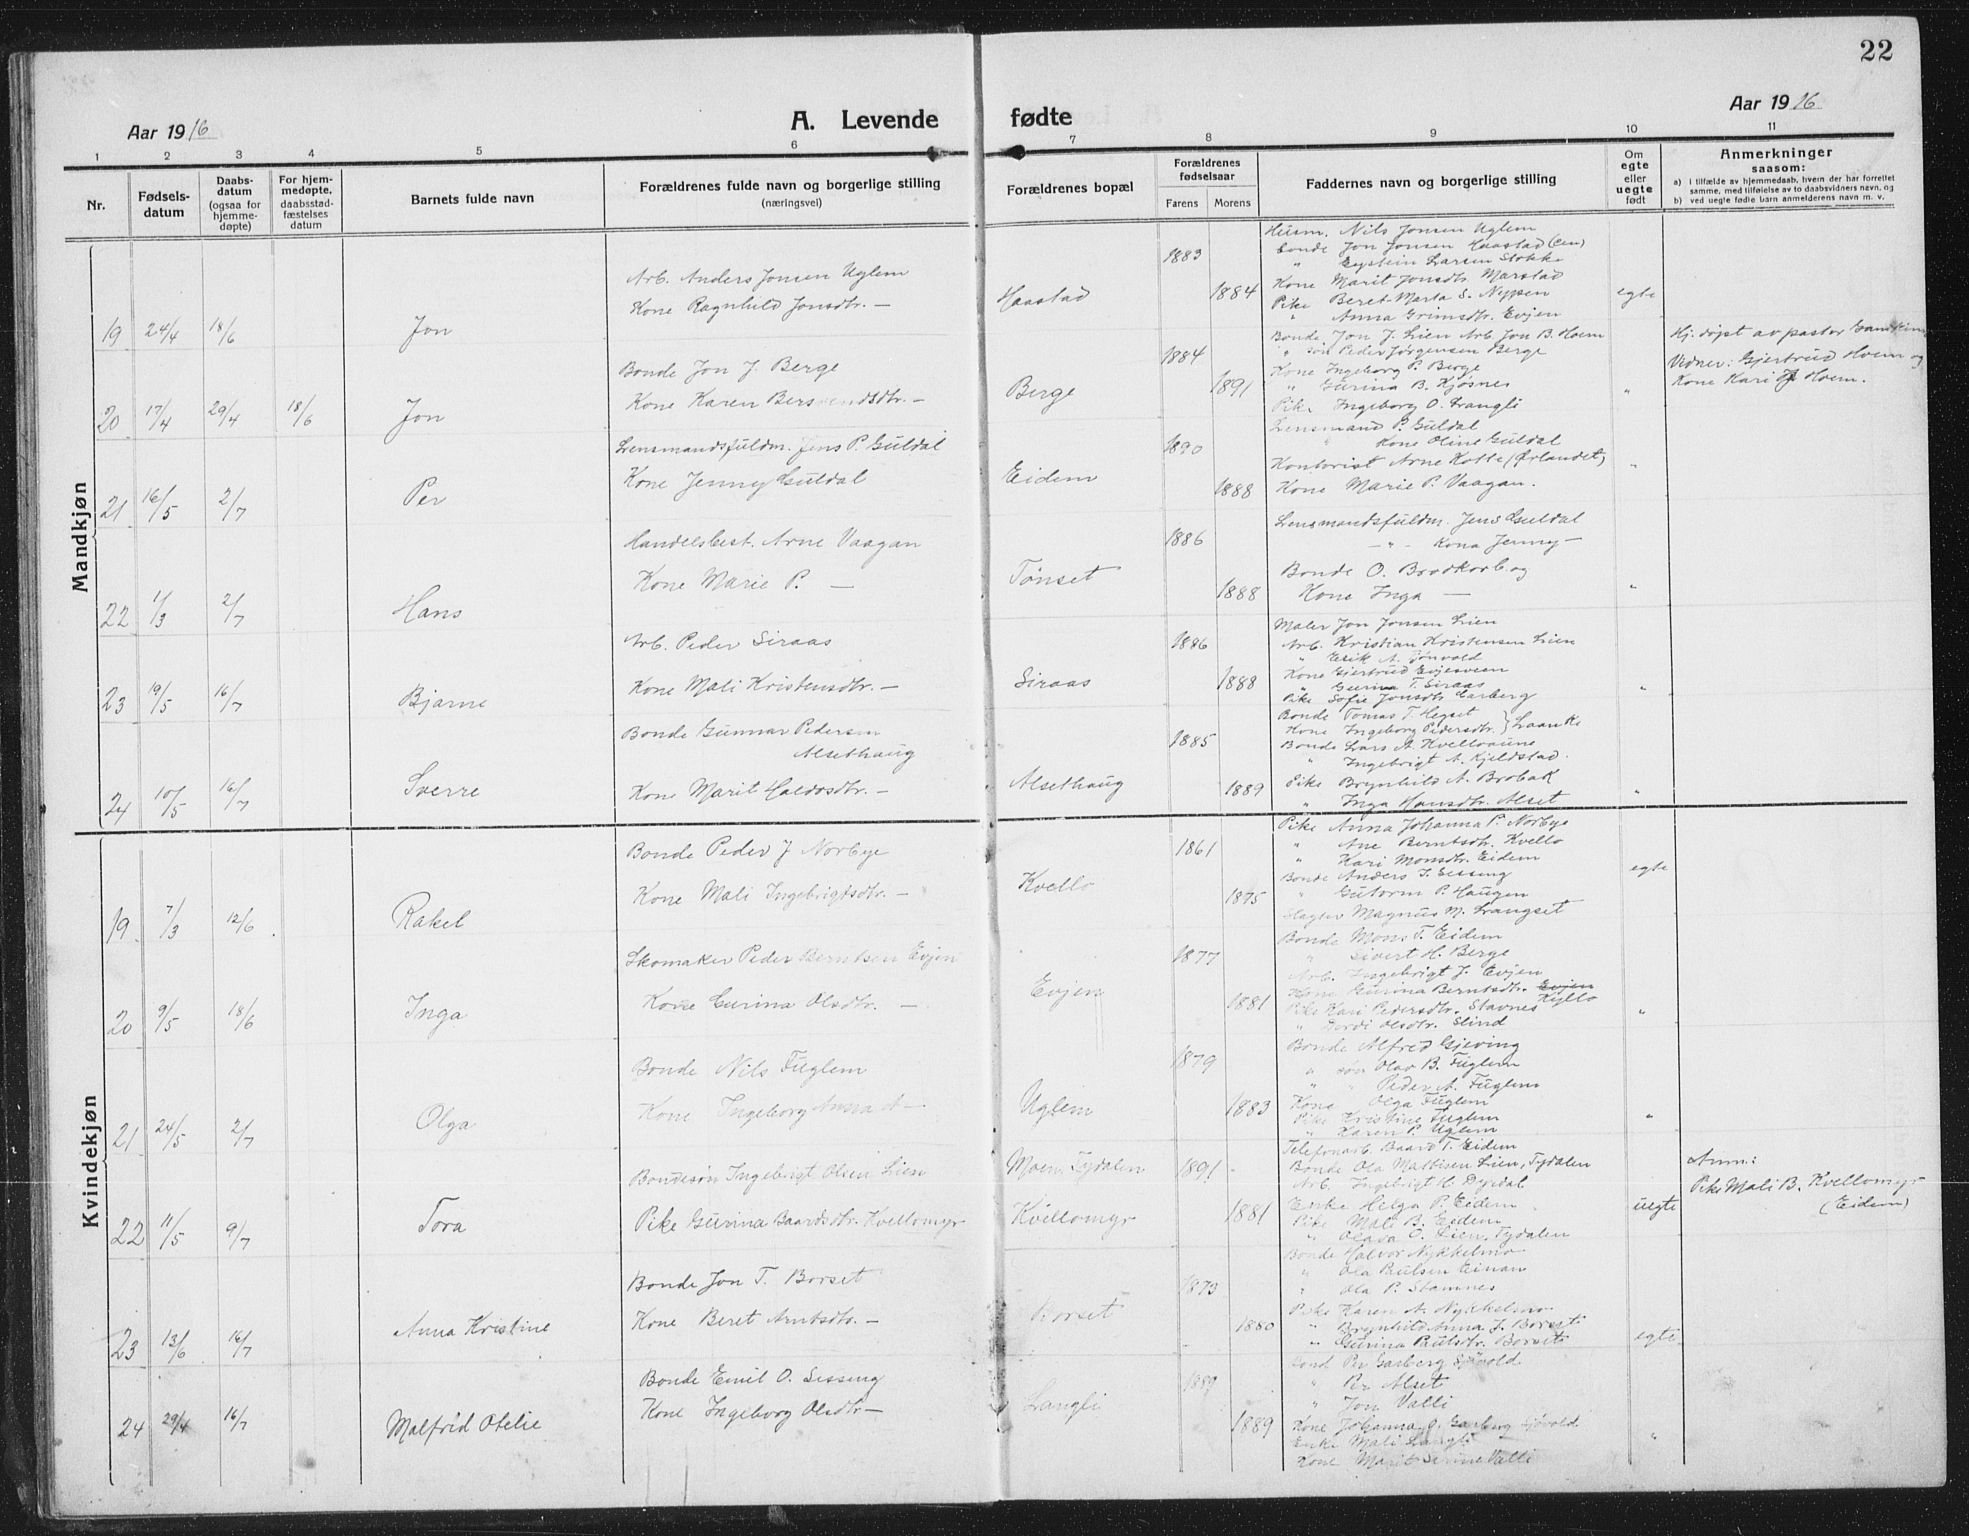 22
Aar 1916
A. Levende
fødte
Aar 1916
1 2 3 4 5 6 7 8 9 10 11
Nr.
Fødsels-
datum
Daabs-
datum
(ogsaa for
hjemme-
døpte)
For hjem-
medøpte,
daabsstad-
fæstelses
datum
Barnets fulde navn
Forældrenes fulde navn og borgerlige stilling
(næringsvei)
Forældrenes bopæl
Forældrenes
fødselsaar
Farens Morens
Faddernes navn og borgerlige stilling
Om
egte
eller
uegte
født
Anmerkninger
saasom:
a) I tilfælde av hjemmedaab, hvem der har forrettet
samme, med tilføielse av to daabsvidners navn, og
b) ved uegte fødte barn anmelderens navn m. v.
Mandkjøn
19 24/4 18/6 Jon
Arb. Anders Jonsen Uglem
Kone Ragnhild Jonsdtr. —
Haastad
1883
1884
Husm. Nils Jonsen Uglem
Bonde Jon Jonsen Haastad (Øen)
" Eystein Larsen Stokke
Kone Marit Jonsdtr. Marstad
Pike Beret-Marta S. Nypen
" Anna Grimsdtr. Evjen
egte
20 17/4 29/4 18/6 Jon
Bonde Jon J. Berge
Kone Karen Bersvendsdtr. —
Berge
1884
1891
Bonde Jon J. Lien Arb Jon B. Hoem
" søn Peder Jørgensen Berge
Kone Ingeborg P. Berge
" Gurina B. Kjøsnes
Pike Ingeborg O. Krangli
"
Hj. døpt av pastor
Vidner: Gjertrud Hoem og
Kone Kari J Hoem.
21 16/5 2/7 Per
Lensmandsfuldm. Jens P. Guldal
Kone Jenny Guldal
Eidem
1890
1888
Lensmand P. Guldal
" Kone Oline Guldal
Kontorist Arne Kotte (Ørlandet)
Kone Marie P. Vaagan.
"
22 1/3 2/7 Hans
Handelsbest. Arne Vaagan
Kone Marie P. —
Tønset
1886
1888
Lensmandsfuldm. Jens Guldal
— " — Kona Jenny —
Bonde O. Brodkorb og
Kone Inga —
"
23 19/5 16/7 Bjarne
Arb. Peder Siraas
Kone Mali Kristensdtr. —
Siraas
1886
1888
Maler Jon Jonsen Lien
Arb. Kristian Kristensen Lien
" Erik A. Tønvold
Kone Gjertrud Evjesveen
" Gurina T. Siraas
Pike Sofie Jonsdtr. Garberg
"
24 10/5 16/7 Sverre
Bonde Gunnar Pedersen
Alsethaug
Kone Marit Haldosdtr. —
Alsethaug
1885
1889
Bonde Tomas T. Hegset
Kone Ingeborg Pedersdtr. } Laanke
Bonde Lars A. Kvelloaune
" Ingebrigt A. Kjeldstad.
Pike Brynhild A. Brobak
" Inga Hansdtr. Alset
"
Kvindekjøn
19 7/3 12/6 Rakel
Bonde Peder J Norbye
Kone Mali Ingebrigtsdtr. —
Kvello
1861
1875
Pike Anna Johanna P. Norbye
" Ane Berntsdtr. Kvello
" Kari Monsdtr. Eidem
Bonde Anders J. Sessing
" Gutorm P. Haugen
Slagter Magnus M. Langset
egte
20 9/5 18/6 Inga
Skomaker Peder Berntsen Evjen
Kone Gurina Olsdtr. —
Evjen
1877
1881
Bonde Mons T. Eidem
" Sivert H. Berge
Arb. Ingebrigt J. Evjen
Kone Gurina Berntsdtr. Evjen Kyllo
Pike Kari Pedersdtr. Stavnes
" Olsdtr. Slind
"
21 24/5 2/7 Olga
Bonde Nils Fuglem
Kone Ingeborg Anna A —
Uglem
1879
1883
Bonde Alfred Gjeving
" søn Olav B. Fuglem
" " Peder A. Fuglem
Kone Olga Fuglem
Pike Kristine Fuglem
" Karen P. Uglem
"
22 11/5 9/7 Tora
Bondesøn Ingebrigt Olsen Lien
Pike Gurina Baardsdtr. Kvellomyr
Moen. Tydalen
Kvellomyr
1891
1881
Telefonarb. Baard T. Eidem
Bonde Ola Mattisen Lien, Tydalen
Arb. Ingebrigt H. Dyrdal
Enke Helga P. Eidem
Pike Mali B. Eidem
" O. Lien, Tydalen
uegte
Anm:
Pike Mali B. Kvellomyr
(Eidem)
23 13/6 16/7 Anna Kristine
Bonde Jon T. Borset
Kone Beret Arntsdtr. —
Borset
1873
1880
Bonde Halvor Nykkelmo
" Ola Paulsen Einan
" Ola P. Stamnes
Pike Karen A. Nykkelmo
" Brynhild Anna J. Borset
" Gurina Paulsdtr. Borset
egte
24 29/4 16/7 Malfrid Otelie
Bonde Emil O. Sessing
Kone Ingeborg Olsdtr —
Langli
1889
1889
Bond Per Garberg Sjøvold
" Per Alset
" Jon Valli
Kone Johanna O. Garberg Sjøvold
Enke Mali Langli
Kone Marit Serine Valli
"